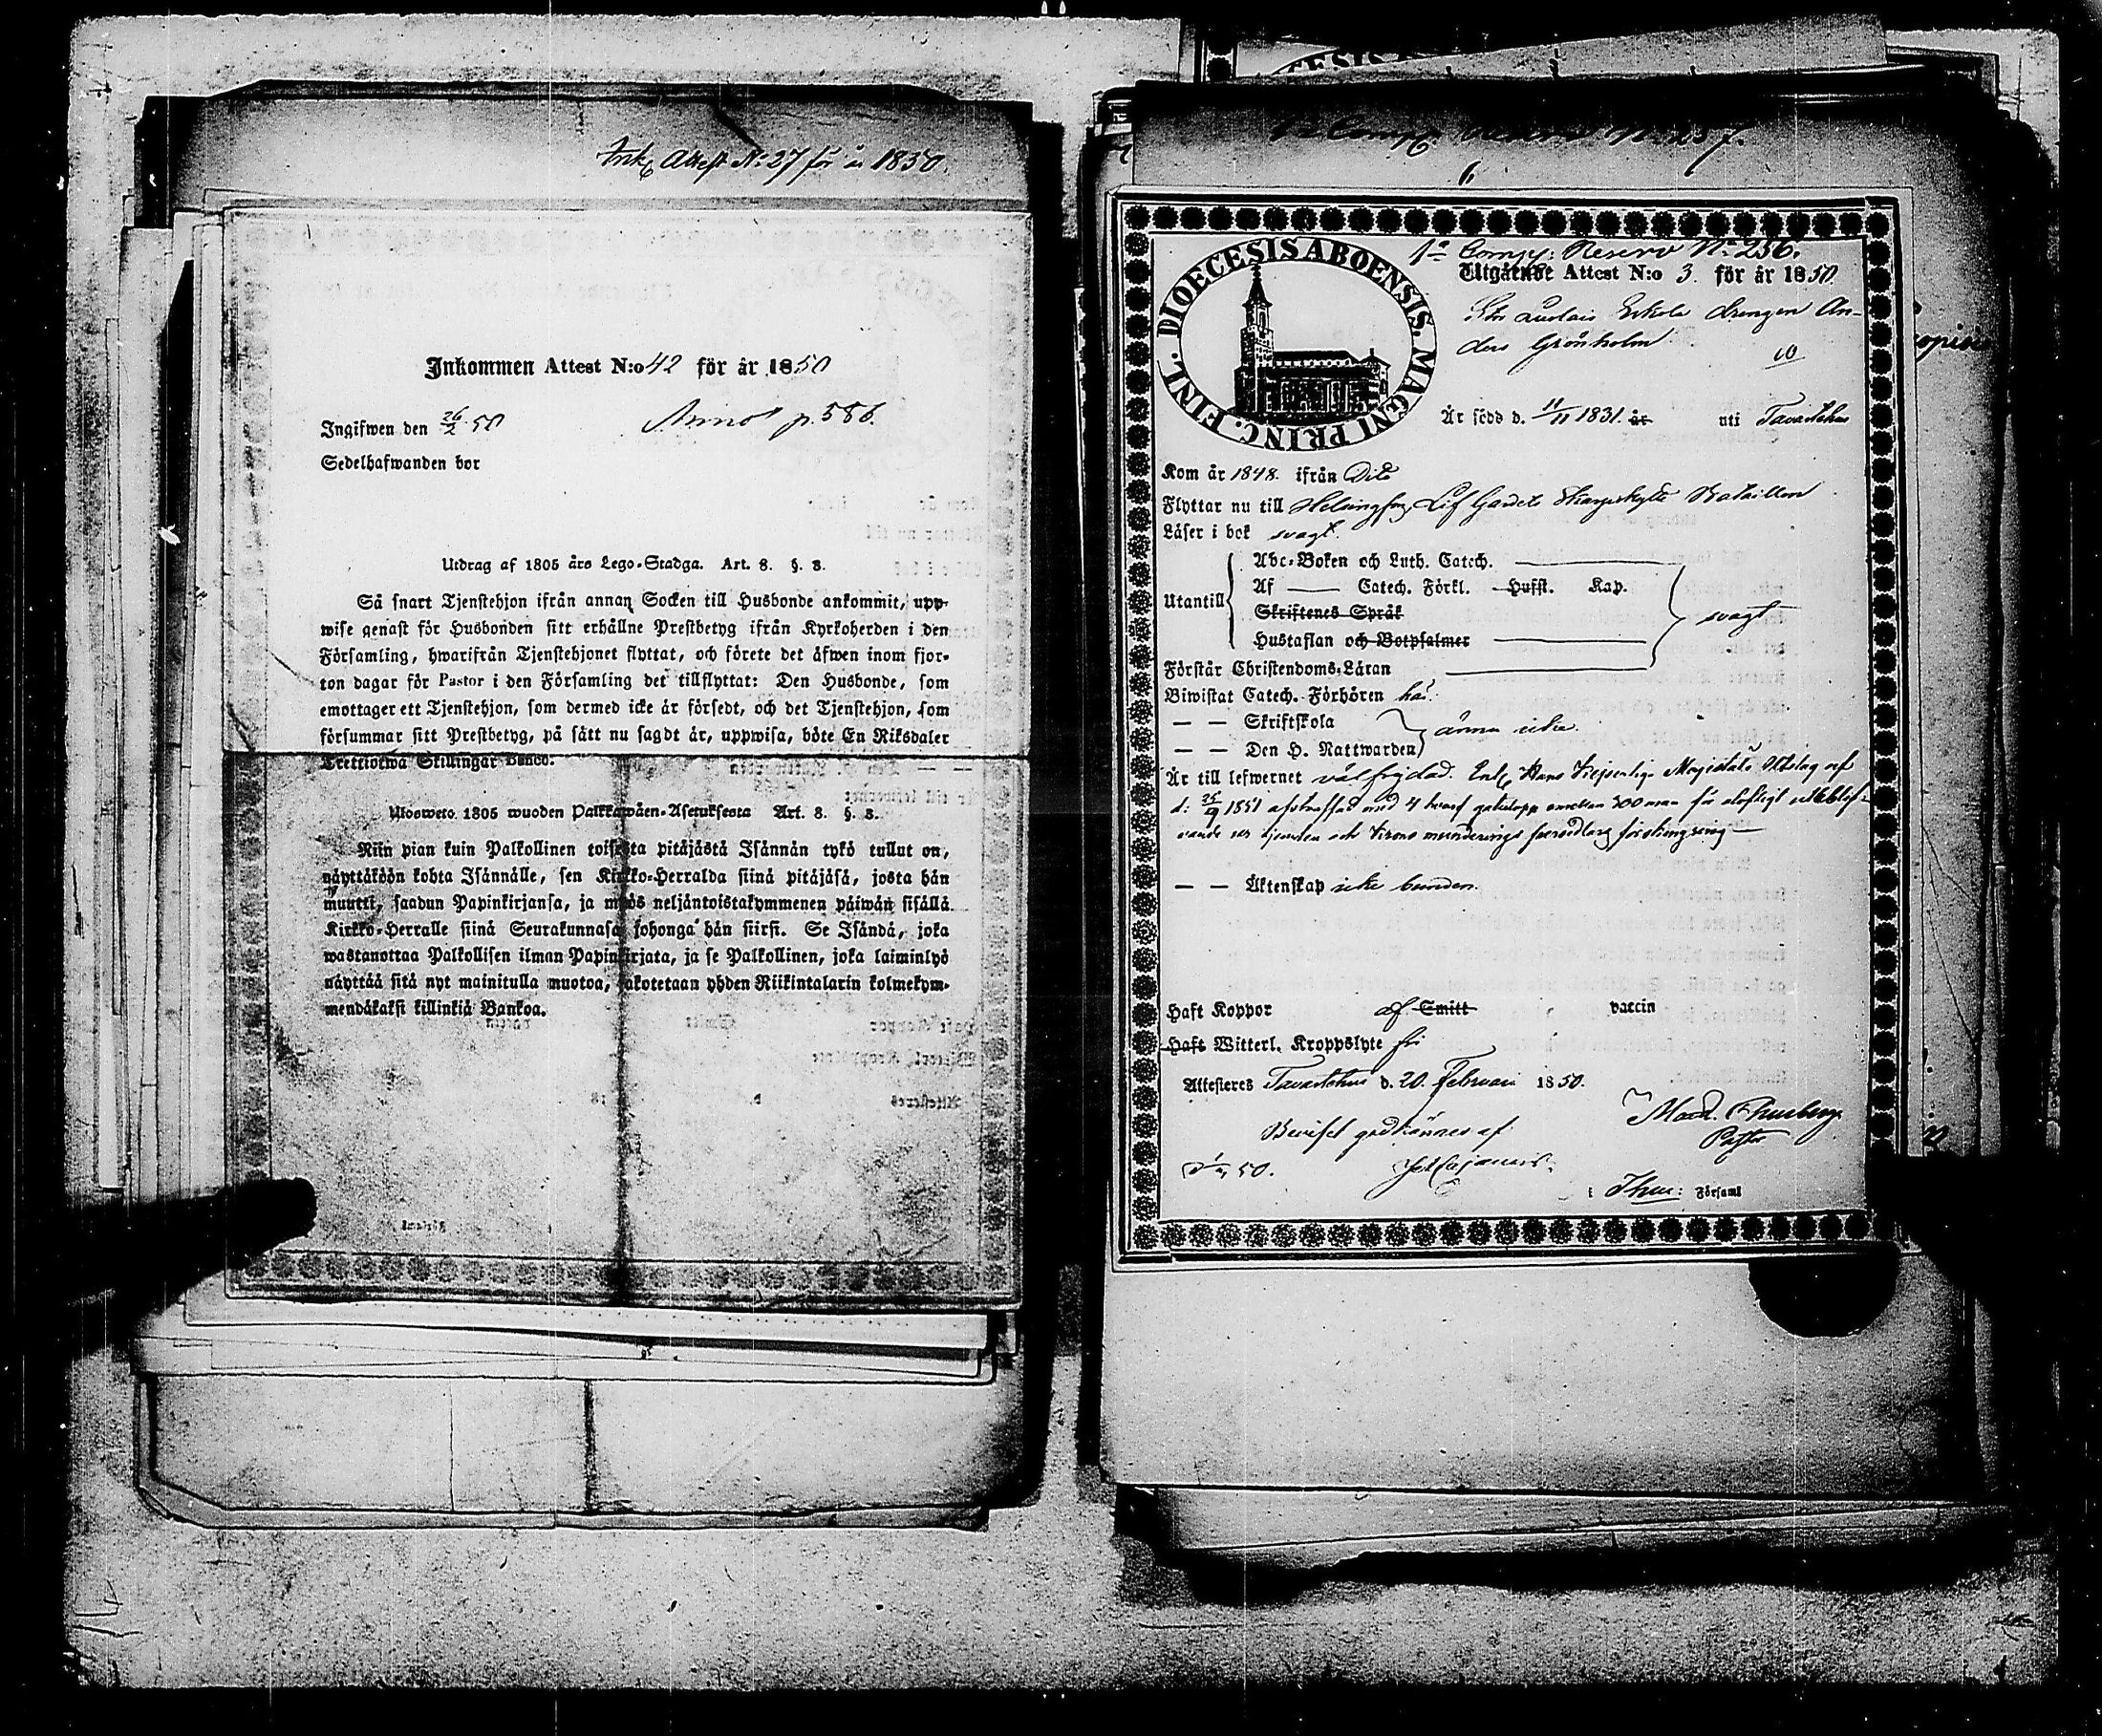 Ink. Attest No: 27 för år 1850.
Inkommen Attest N:o 42 för år 1850
Ingifwen den 26/2 50
p. 586.
Sedelhafwanden bor
Utdrag af 1805 års Lego-Stadga. Art. 8. §. 3.
Så snart Tjenstehjon ifrån annan Socken till Husbonde ankommit, upp-
wise genast för Husbonden sitt erhållne Prestbetyg ifrån Kyrkoherden i den
Församling, hwarifrån Tjenstehjonet flyttat, och förete det äfwen inom fjor-
ton dagar för Pastor i den Församling det tillflyttat: Den Husbonde, som
emottager ett Tjenstehjon, som dermed icke är försedt, och det Tjenstehjon, som
försummar sitt Prestbetyg, på sätt nu sagdt är, uppwisa, böte En Riksdaler
Trettiotwå Skillingar Banco.
Ulosweto 1805 wuoden Palkkawäen-Asetuksesta Art. 8. §. 3.
Niin pian kuin Palkollinen toisesta pitäjästä Isännän tykö tullut on,
näyttäköön kohta Isännälle, sen Kirkko-Herralda siinä pitäjäsä, josta hän
muutti, saadun Papinkirjansa, ja myös neljäntoistakymmenen päiwän sisällä
Kirkko-Herralle siinä Seurakunnasa johonga hän siirsi. Se Isändä, joka
wastanottaa Palkollisen ilman Papinkirjata, ja se Palkollinen, joka laiminlyö
näyttää sitä nyt mainitulla muotoa, sakotetaan yhden Riikintalarin kolmekym-
mendäkaksi killinkiä Bankoa.
No 257.
6
DIOECESIS ABOENSIS. MAGNI PRINC. FINL.
1a Comp: Reserv No 256.
Utgående Attest N:o 3. för år 1850
drengen An-
ders Grönholm
10
Är född d. 11/11 1831. år uti Tavastehus
Kom år 1848. ifrån Dito
Flyttar nu till Helsingfors, Lif Gardets Skarpskytte Bataillon
Läser i bok svagt.
Utantill
Abc-Boken och Luth. Catech.
Af Catech. Förkl. Hufst. Kap.
Skriftenes Språk
Hustaflan och Botpsalmer
svagt
Förstår Christendoms-Läran
Biwistat Catech. Förhören har.
— — Skriftskola
— — Den H. Nattwarden
ännu icke.
Är till lefwernet välfrejdad. Enl. Hans Kejserliga Majestäts Utslag af
d. 25/9 1851 afstraffad med 4 hvarf gatulopp emellan 300 man för olofligt uteblif-
vande ur tjensten och Krono munderings persedlars förskingring —
— — Äktenskap icke bunden.
Haft Koppor af Smitt vaccin
Haft Witterl. Kroppslyte fri
Attesteres Tavastehus d. 20. Februari 1850.
Beviset godkännes af
50.
Pastor
i Thus: Församl